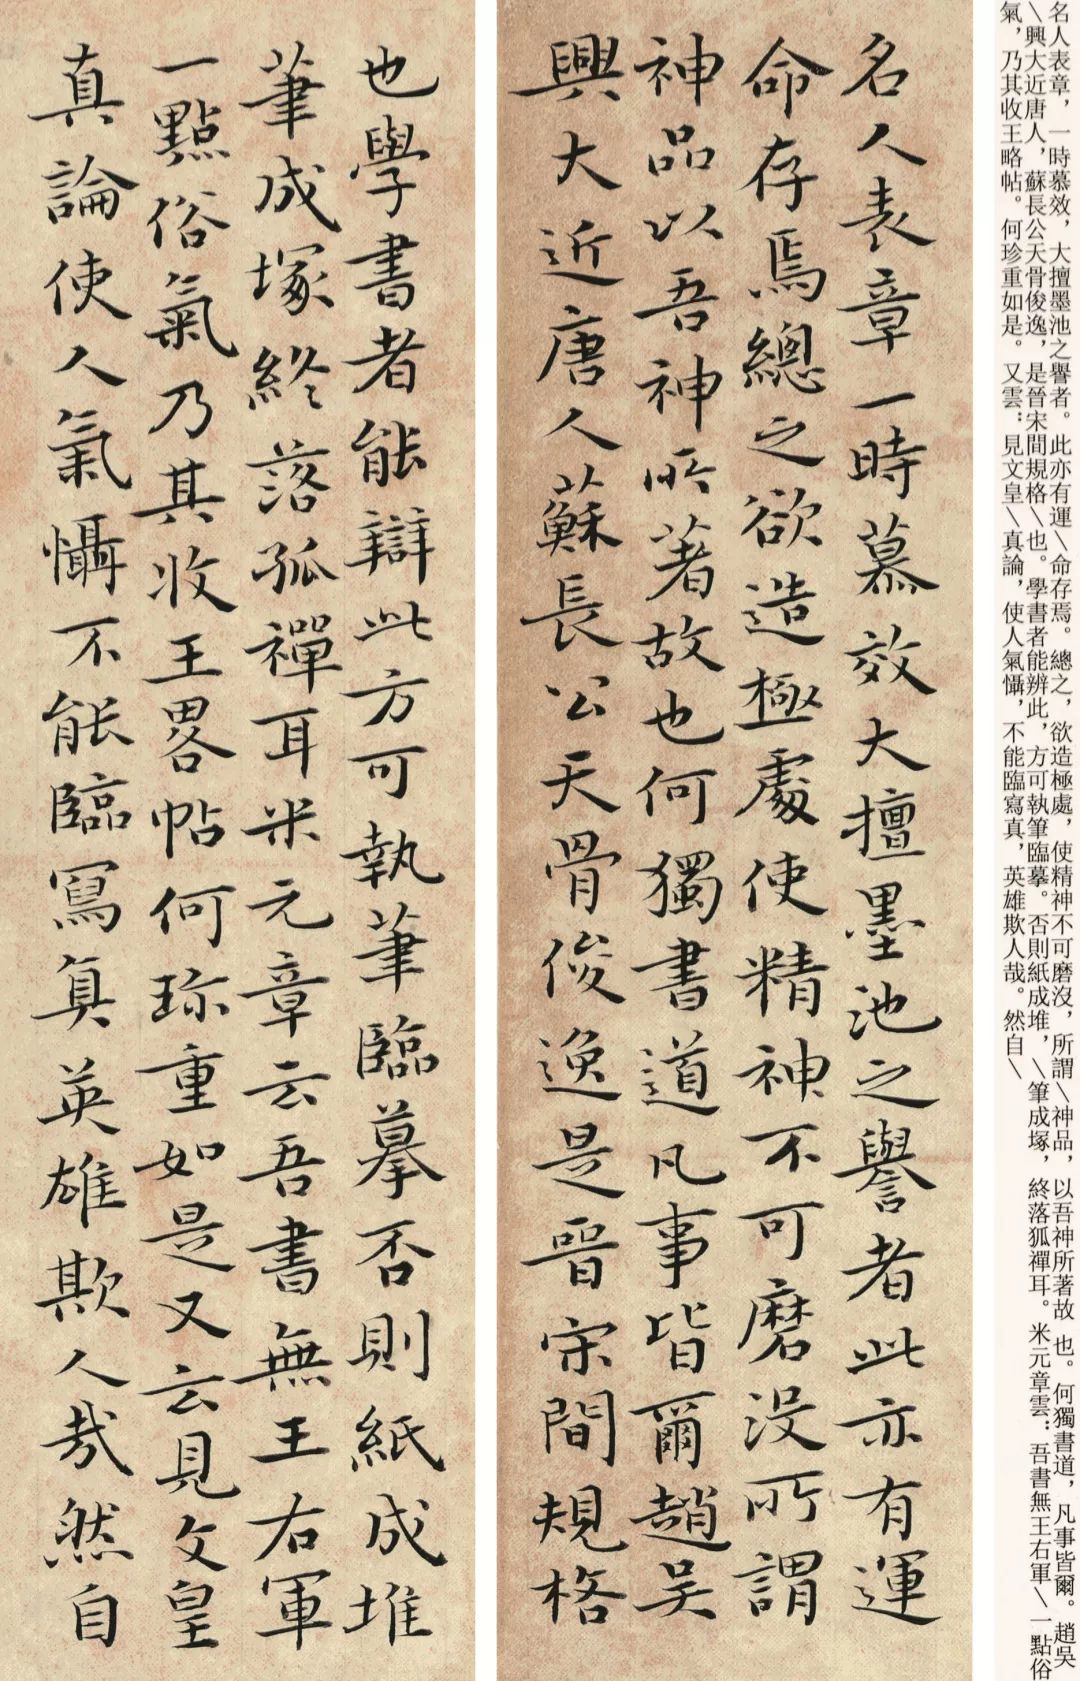 名人表章一時慕效大擅墨池之譽者此亦有運
命存焉總之欲造極處使精神不可磨没所謂
神品以吾神所著故也何獨書道凡事皆爾趙吴
興大近唐人蘇長公天骨俊逸是晉宋間規格
也學書者能辯此方可執筆臨摹否則紙成堆
筆成塚終落孤禪耳米元章云吾書無王右軍
一點俗氣乃其收王畧帖何珎重如是又云見文皇
真論使人氣懾不能臨寫真英雄欺人哉然自
名人表章，一時慕效，大擅墨池之譽者。此亦有運\命存焉。總之，欲造極處，使精神不可磨沒，所謂\神品，以吾神所著故 也。何獨書道，凡事皆爾。趙吳
\興大近唐人，蘇長公天骨俊逸，是晉宋間規格\也。學書者能辨此，方可執筆臨摹。否則紙成堆，\筆成塚，終落狐禪耳。米元章雲：吾書無王右軍\一點俗
氣，乃其收王略帖。何珍重如是。又雲：見文皇\真論，使人氣懾，不能臨寫真，英雄欺人哉。然自\